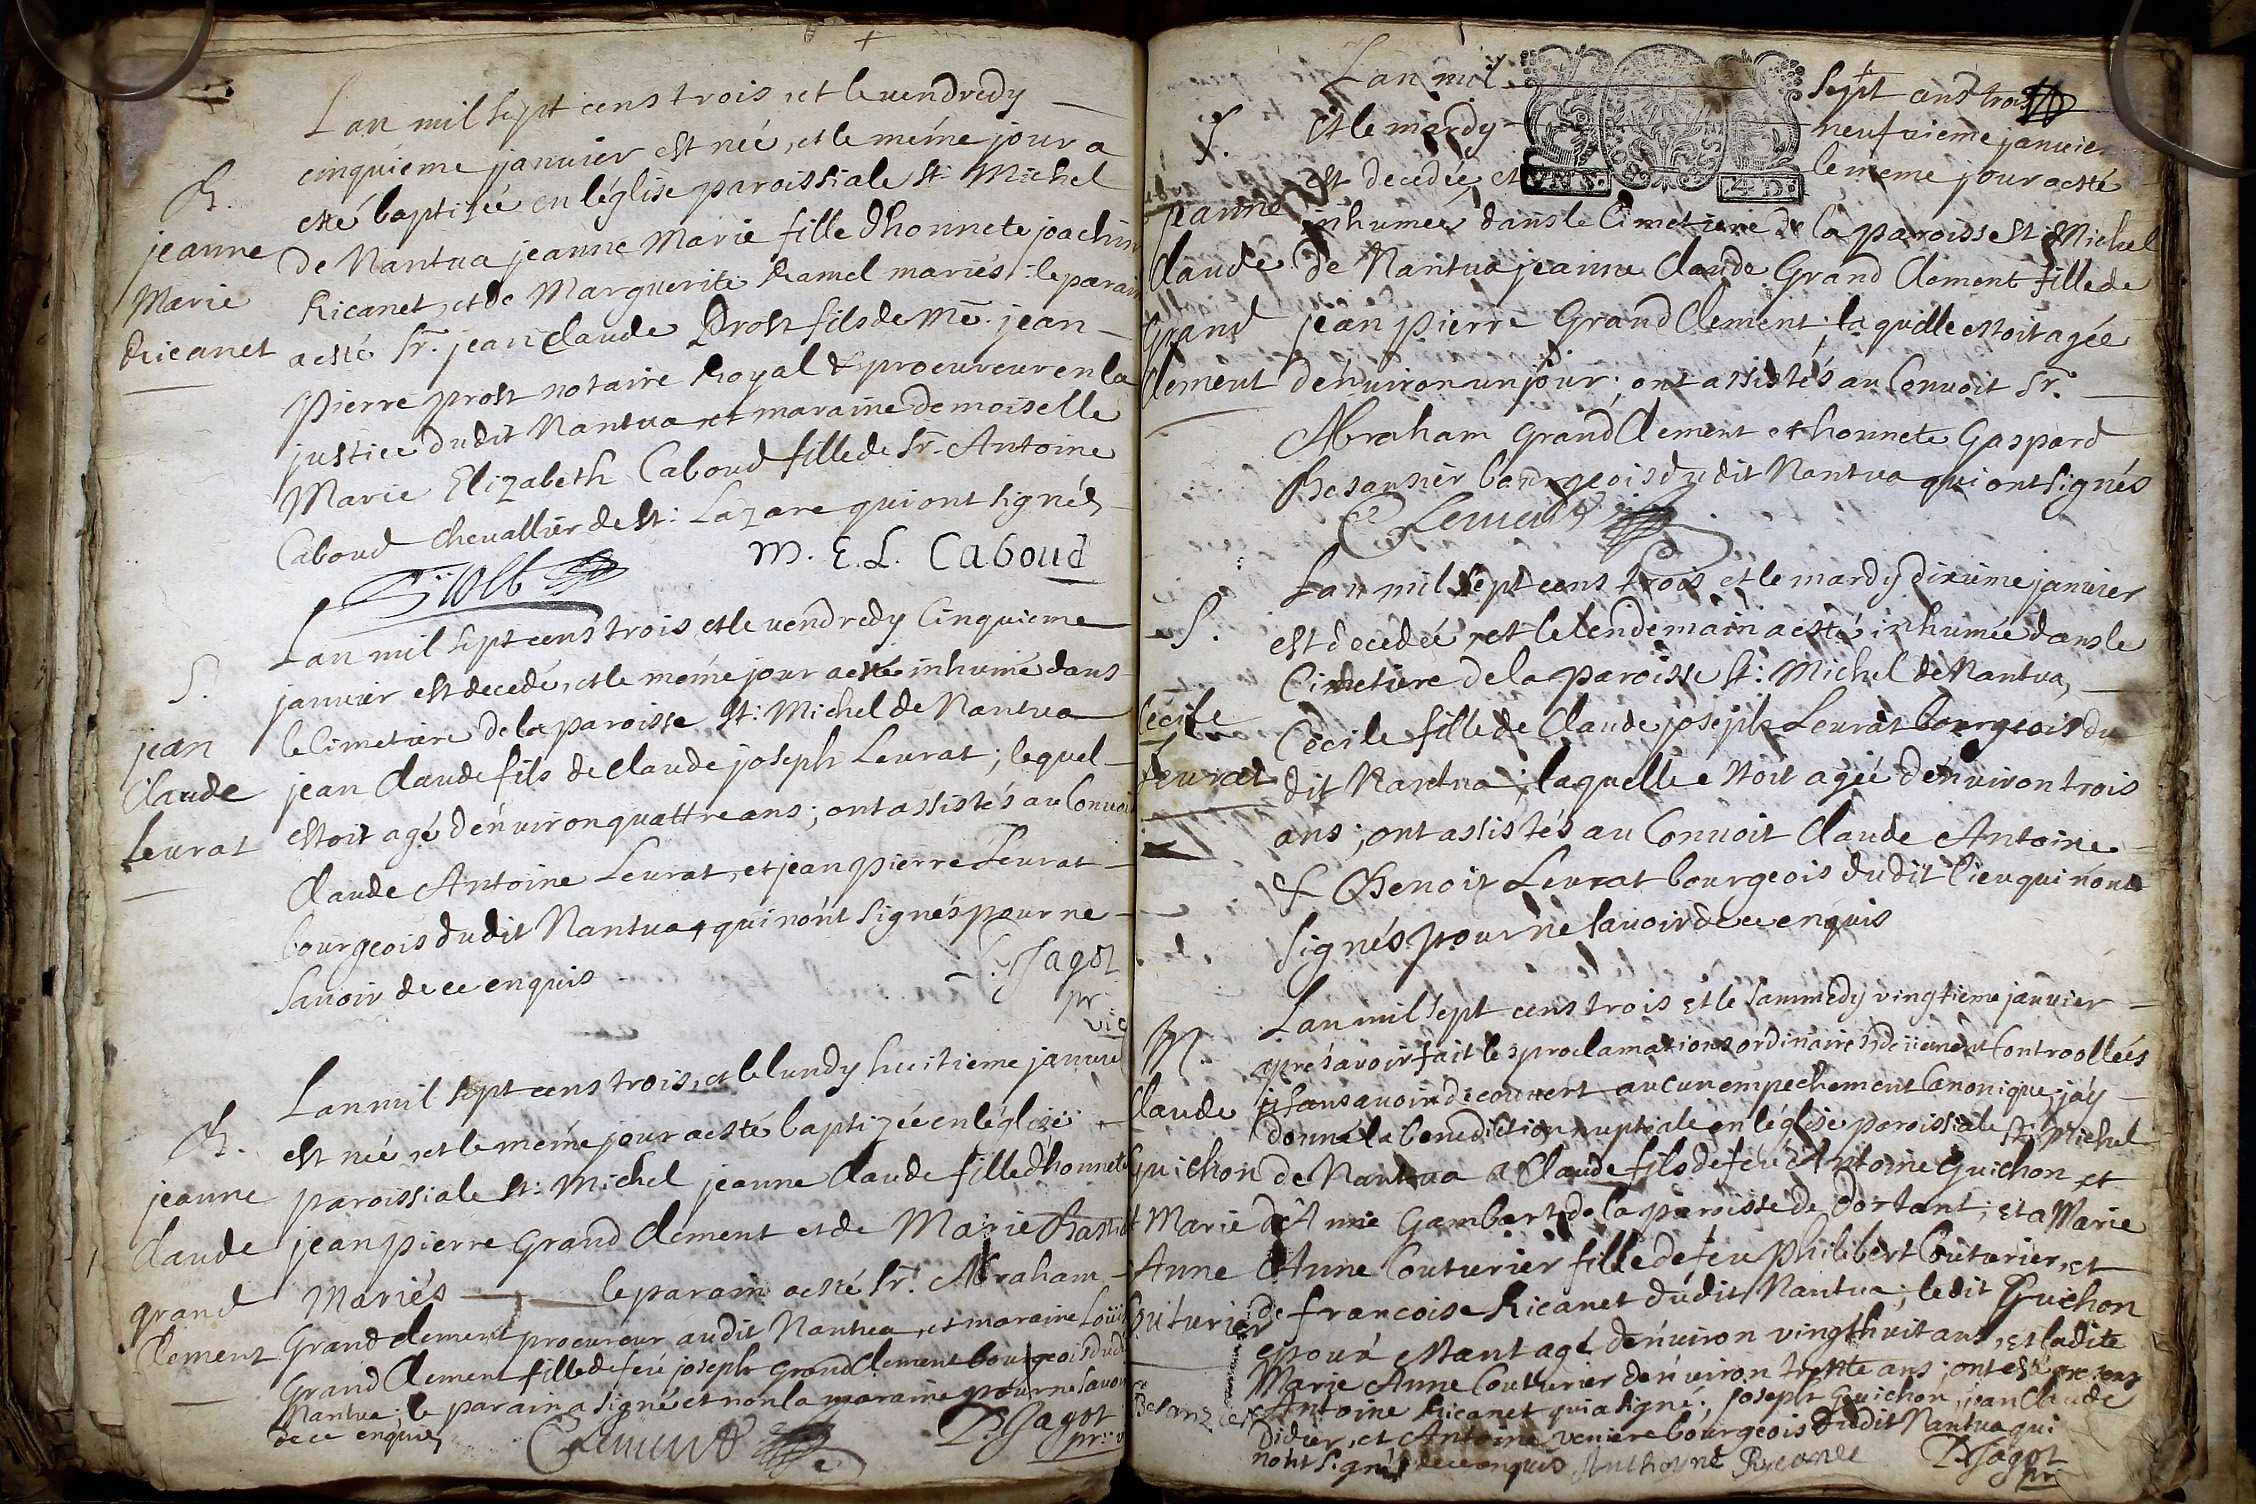 Lan mil sept cens trois et le vendredy
cinquieme januier est née, et le méme jour a
esté baptisée en léglise paroissiale St: Michel
de Nantua jeanne Marie fille dhonnete joachim
Ricanet, et de Marguerite Ramel mariés: le parain
a esté Sr. jean Claude Prost fils de Me. jean
Pierre prost notaire Royal & procureur en la
justice dudit Nantua et maraine demoiselle
Marie Elizabeth Caboud fille de Sr. Antoine
Caboud Chevallier de St: Lazare qui ont signés
M. E. L. Caboud
B.
jeanne
Marie
Ricanet
Lan mil sept cens trois, et le vendredy Cinquieme
januier est decedé, et le méme jour a esté inhumé dans
le Cimetiere de la paroisse St: Michel de Nantua
jean Claude fils de Claude joseph Leurat; lequel
estoit agé dénuiron quattre ans; ont assistés au Conuoi
Claude Antoine Leurat, et jean pierre Leurat
bourgeois dudit Nantua, qui nónt signés pour ne
sauoir de ce enquis
Jagot
pr.
vic
S.
jean
Claude
Leurat
Lan mil sept cens trois, et le lundy huitieme januier
est née, et le méme jour a esté baptizée en léglise
paroissiale St: Michel jeanne Claude fille dhonnete
jean pierre Grand Clement et de Marie
Mariés le parain a esté Sr. Abraham
Grand Clement procureur audit Nantua, et maraine
Grand Clement fille de feu joseph Grand Clement bourgeois dudit
Nantua; le parain a signé et non la maraine pour ne sauoir
de ce enquis
Clement
D. Jagot
pr. v
B.
jeanne
Claude
grand
Clement
Lan mil sept cens trois
Et le mardy neufuieme januier
est decedée, et le méme jour a esté
inhumée dans le Cimetiere de la paroisse St: Michel
de Nantua jeanne Claude Grand Clement fille de
jean pierre Grand Clement; la quelle estoit agée
dénuiron un jour; ont assistés au Conuoit Sr.
Abraham Grand Clement et honnete Gaspard
Besansier bourgeois dudit Nantua qui ont signés
Clement
S.
jeanne
Claude
Grand
Clement
Lan mil sept cens trois et le mardy dixieme januier
est decedée, et le lendemain a esté inhumée dans le
Cimetiere de la paroisse St: Michel de Nantua,
Cecile fille de Claude joseph Leurat bourgeois du
dit Nantua; laquelle estoit agée dénuiron trois
ans; ont assistés au Conuoit Claude Antoine
& Benoit Leurat bourgeois dudit lieu qui nónt
signés pour ne sauoir de ce enquis
S.
Cécile
Leurat
Lan mil sept cens trois Et le sammedy vingtieme januier
apres avoir fait les proclamations ordinaires Controollées
sans auoir decouuert aucun empechement Canonique, jáy
donné la benediction nuptiale en léglise paroissiale St: Michel
de Nantua a Claude fils de feu Antoine Guichon et
de Anne Gambert de la paroisse de Dortant; Et a Marie
Anne Couturier fille de feu philibert Couturier, et
de francoise Ricanet dudit Nantua; ledit Guichon
epoux estant agé dénuiron vingthuit ans, Et ladite
Marie Anne Couturier dénuiron trente ans; ont esté presens
Antoine Ricanet qui a signé; joseph Guichon, jean Claude
Didier, et Antoine veniere bourgeois dudit Nantua qui
nónt signés de ce enquis Anthoyne Ricanet
D. Jagot
pr.
M.
Claude
Guichon
et Marie
Anne
Couturier
Besanzier